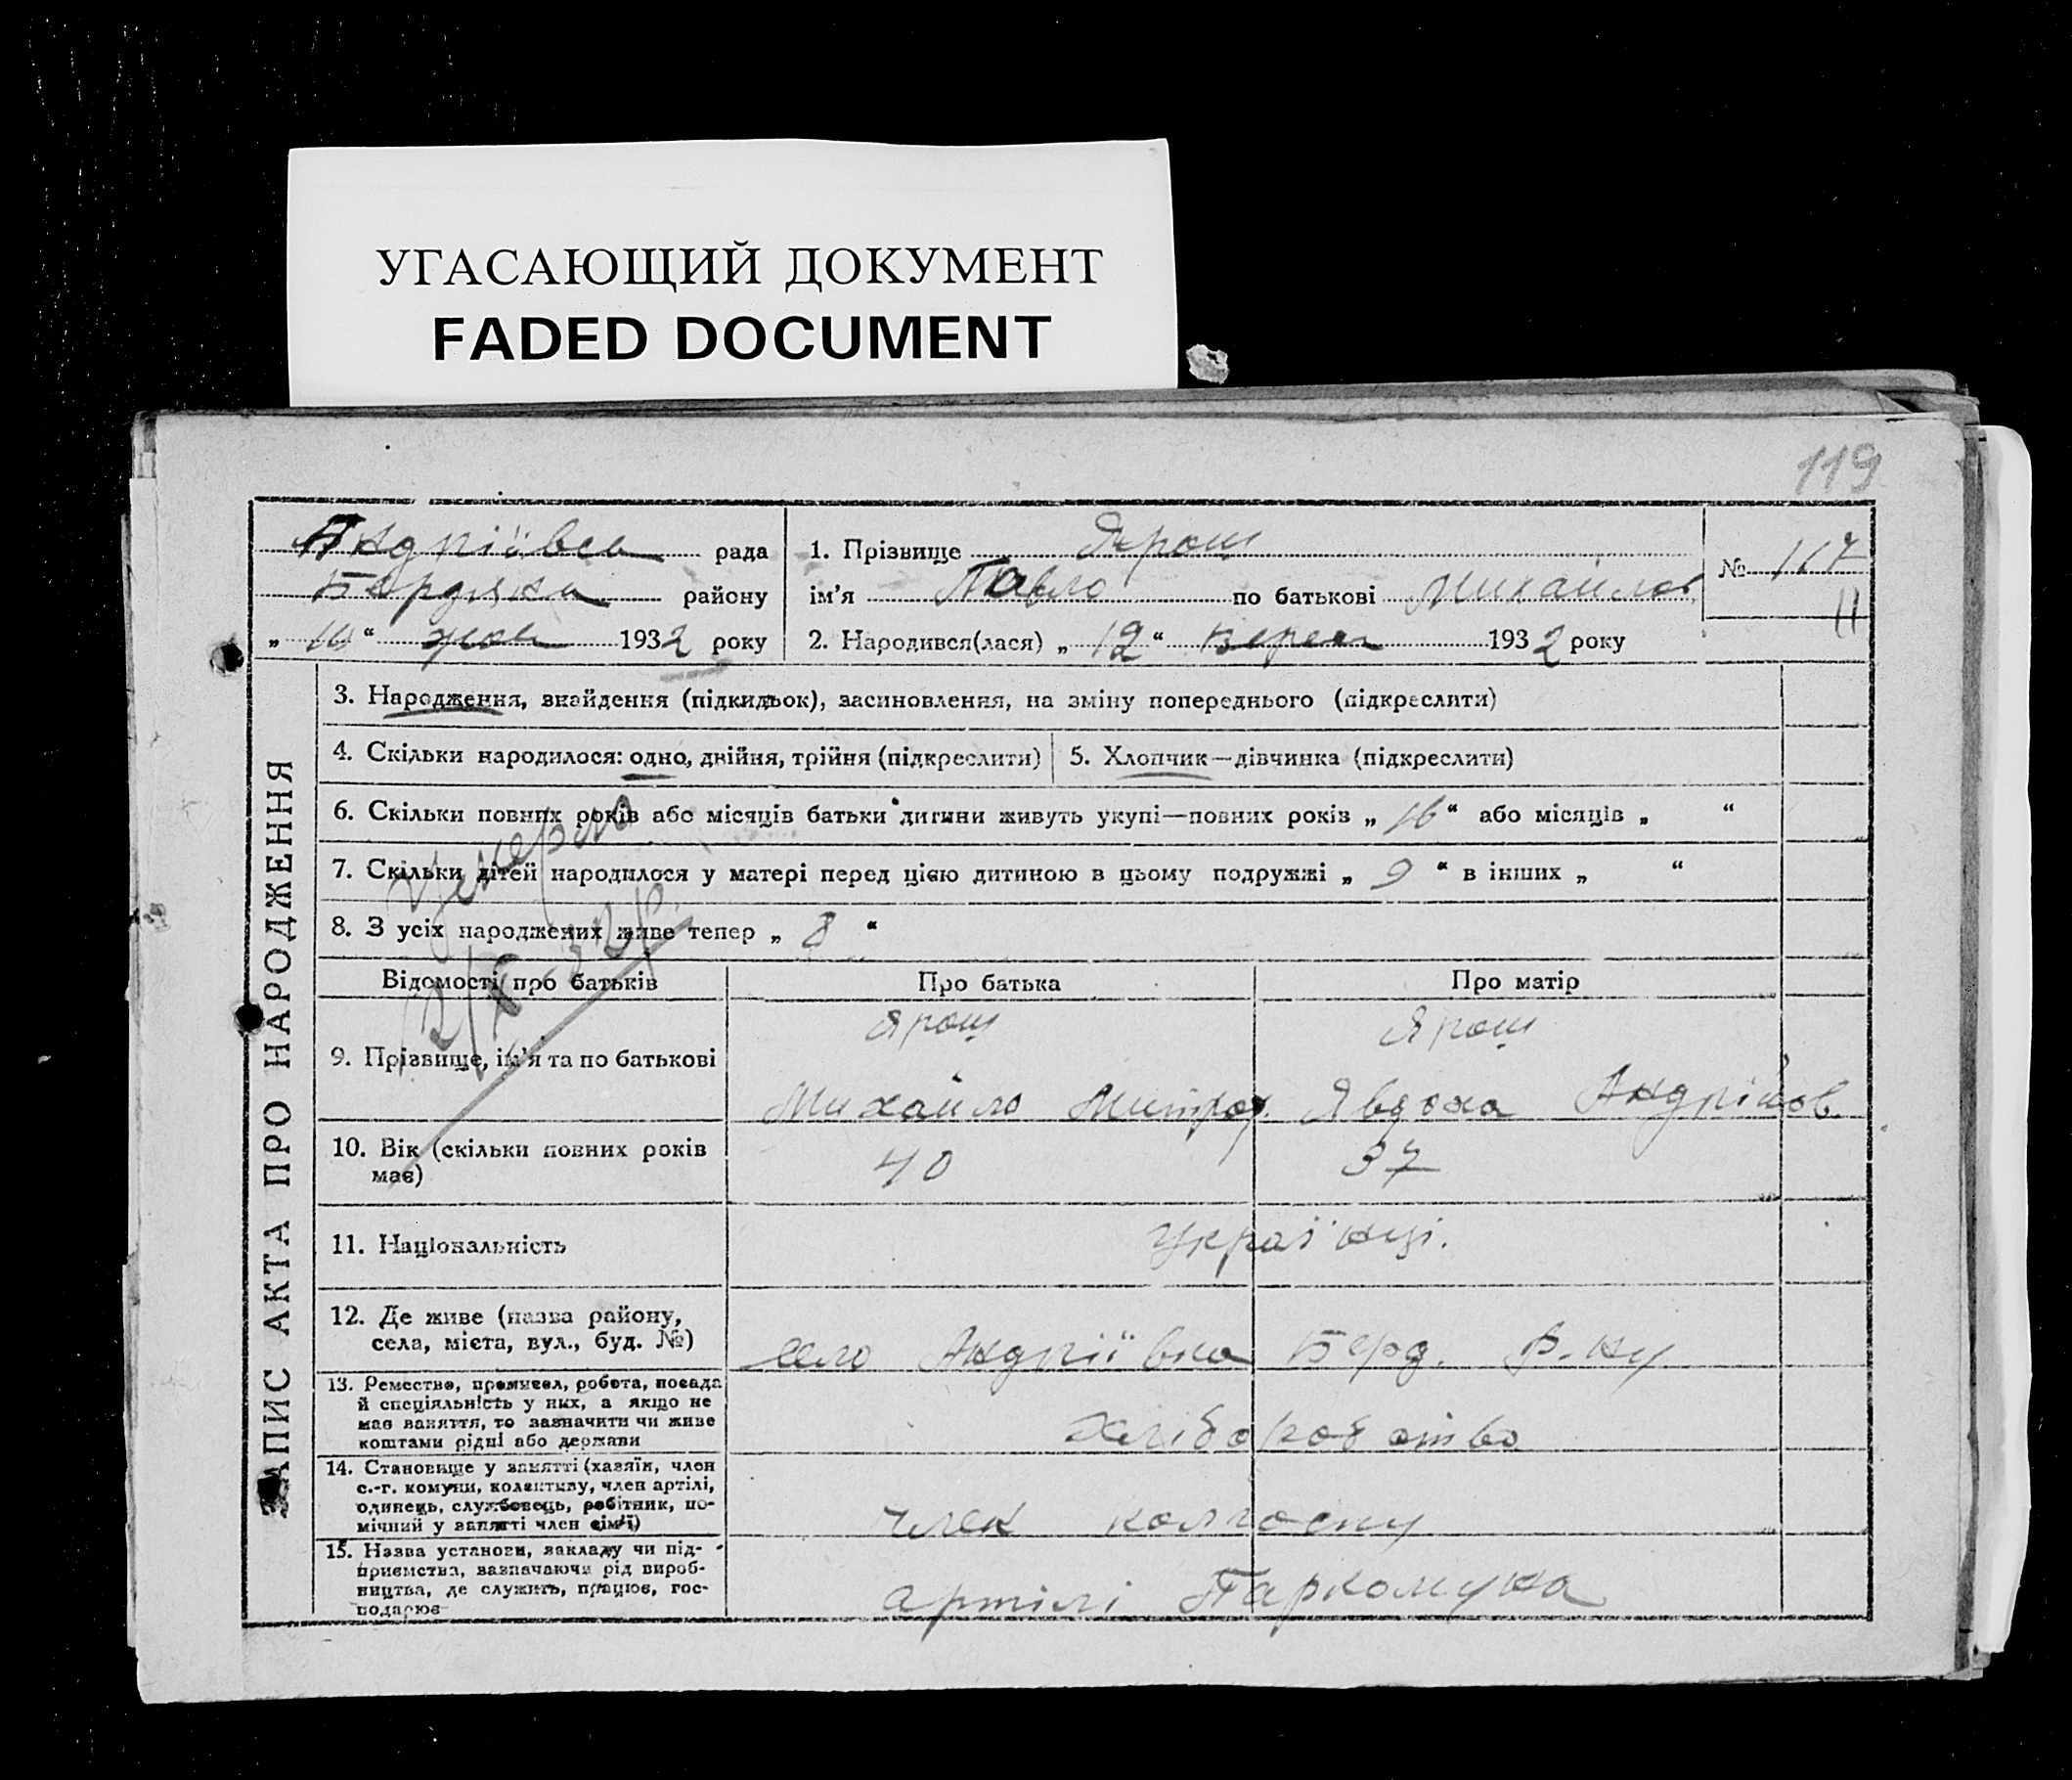 УГАСАЮЩИЙ ДОКУМЕНТ
FADED DOCUMENT
119
Андріївсь рада
Бердянсь району
„ 10 “ жов 1932 року
1. Прізвище Ярош
ім’я Павло по батькові Михайлов.
2. Народився(лася) „ 12 “ Верес 1932 року
№ 117
11
ЗАПИС АКТА ПРО НАРОДЖЕННЯ
3. Народження, знайдення (підкидьок), засиновлення, на зміну попереднього (підкреслити)
4. Скільки народилося: одно, двійня, трійня (підкреслити)
5. Хлопчик—дівчинка (підкреслити)
6. Скільки повних років або місяців батьки дитини живуть укупі—повних років „ 16 “ або місяців „ “
7. Скільки дітей народилося у матері перед цією дитиною в цьому подружжі „ 9 “ в інших „ “
8. З усіх народжених живе тепер „ 8 “
Умерло
Відомості про батьків
Про батька
Про матір
9. Прізвище, ім’я та по батькові
Ярош
Михайло Митроф.
Ярош
Явдоха Андрійов.
10. Вік (скільки повних років
має)
40
37
11. Національність
Українці.
12. Де живе (назва району,
села, міста, вул., буд. №)
село Андріївка Берд. Р-ну
13. Ремество, промисел, робота, посада
й спеціяльність у них, а якщо не
має заняття, то зазначити чи живе
коштами рідні або держави
Хліборобство
14. Становище у занятті (хазяїн, член
с.-г. комуни, колективу, член артілі,
одинець, службовець, робітник, по-
мічний у занятті член сім’ї)
член колгоспу
15. Назва установи, закладу чи під-
приємства, зазначаючи рід вироб-
ництва, де служить, працює, гос-
подарює
артілі Паркомуна